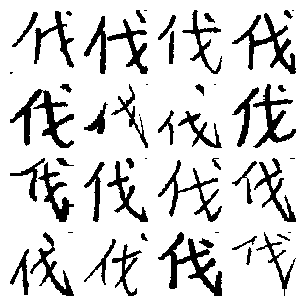 伐伐伐伐
伐伐伐伐
伐伐伐伐
伐伐伐伐